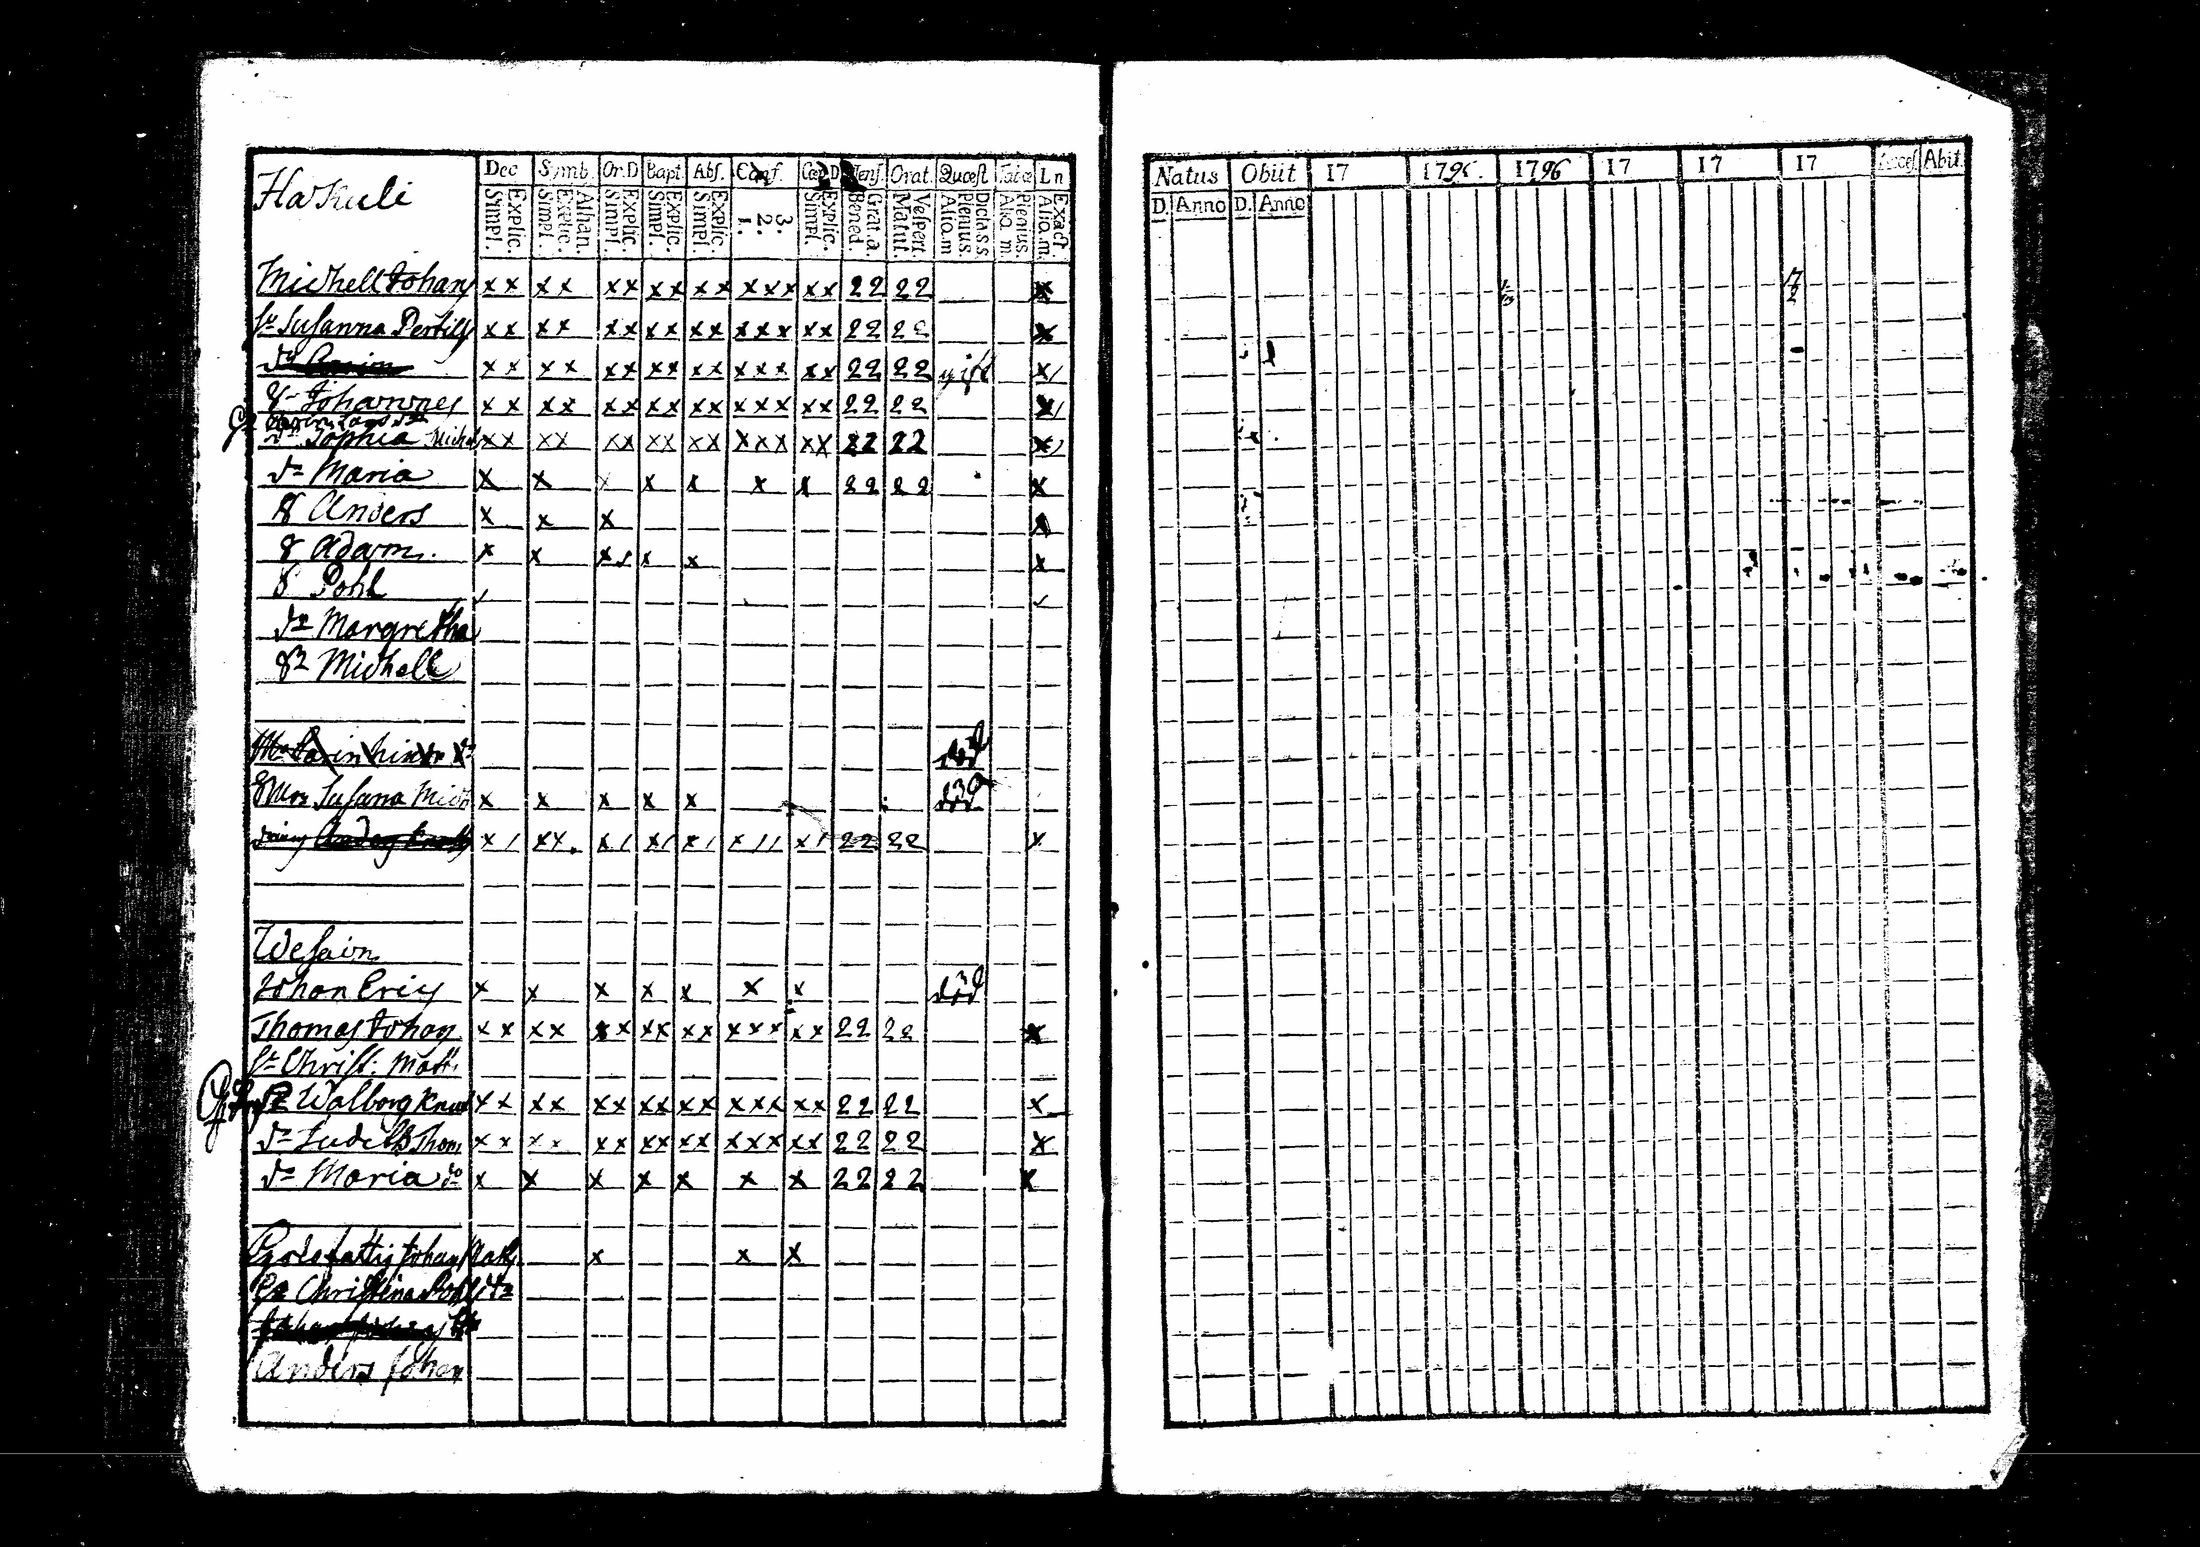 Haskuli Dec Symb. Or.D Bapt. Abs. Conf. Cœn D Mens. Orat. Quæst Ln
Simpl. Explic. Simpl. Explic. Athan. Simpl. Explic. Simpl. Explic. Simpl. Explic. 1. 2. 3. Simpl. Explic. Bened. Grat. a. Matut. Vespert. Aliq. m Plenius. D:class Aliq. m. Plenius. Aliq. m. Exact
Michell Johans x x x x x x x x x x x x x x x 2 2 2 2 x
hu Susanna Pertills x x x x x x x x x x x x x x x 2 2 2 2 x
x x x x x x x x x x x x x x x 2 2 2 2 gift x /
Johannes x x x x x x x x x x x x x x x 2 2 2 2 x /
Sophia Michels x x x x x x x x x x x x x x x 2 2 2 2 x /
dr Maria x x x x x x x 2 2 2 2 x
Anders x x x x
Adam. x x x x x x
Pohl
dr Margretha
Michell
död
Susana Mich x x x x x död
x / x x. x / x / x / x / / x / 2 2 2 2 x
Wesain
Johan Erics x x x x x x x död
Thomas Johans x x x x x x x x x x x x x x x 2 2 2 2 x
hu Christ: Matt:
Walborg Knut x x x x x x x x x x x x x x x 2 2 2 2 x
dr Judith Thom x x x x x x x x x x x x x x x 2 2 2 2 x
dr Maria do x x x x x x x 2 2 2 2 x
Johan Math x x x
Christina Pohls dr
Anders Johan
Natus Obiit 17 1795. 1796 17 17 17 Acces. Abit.
D. Anno D. Anno
17
2